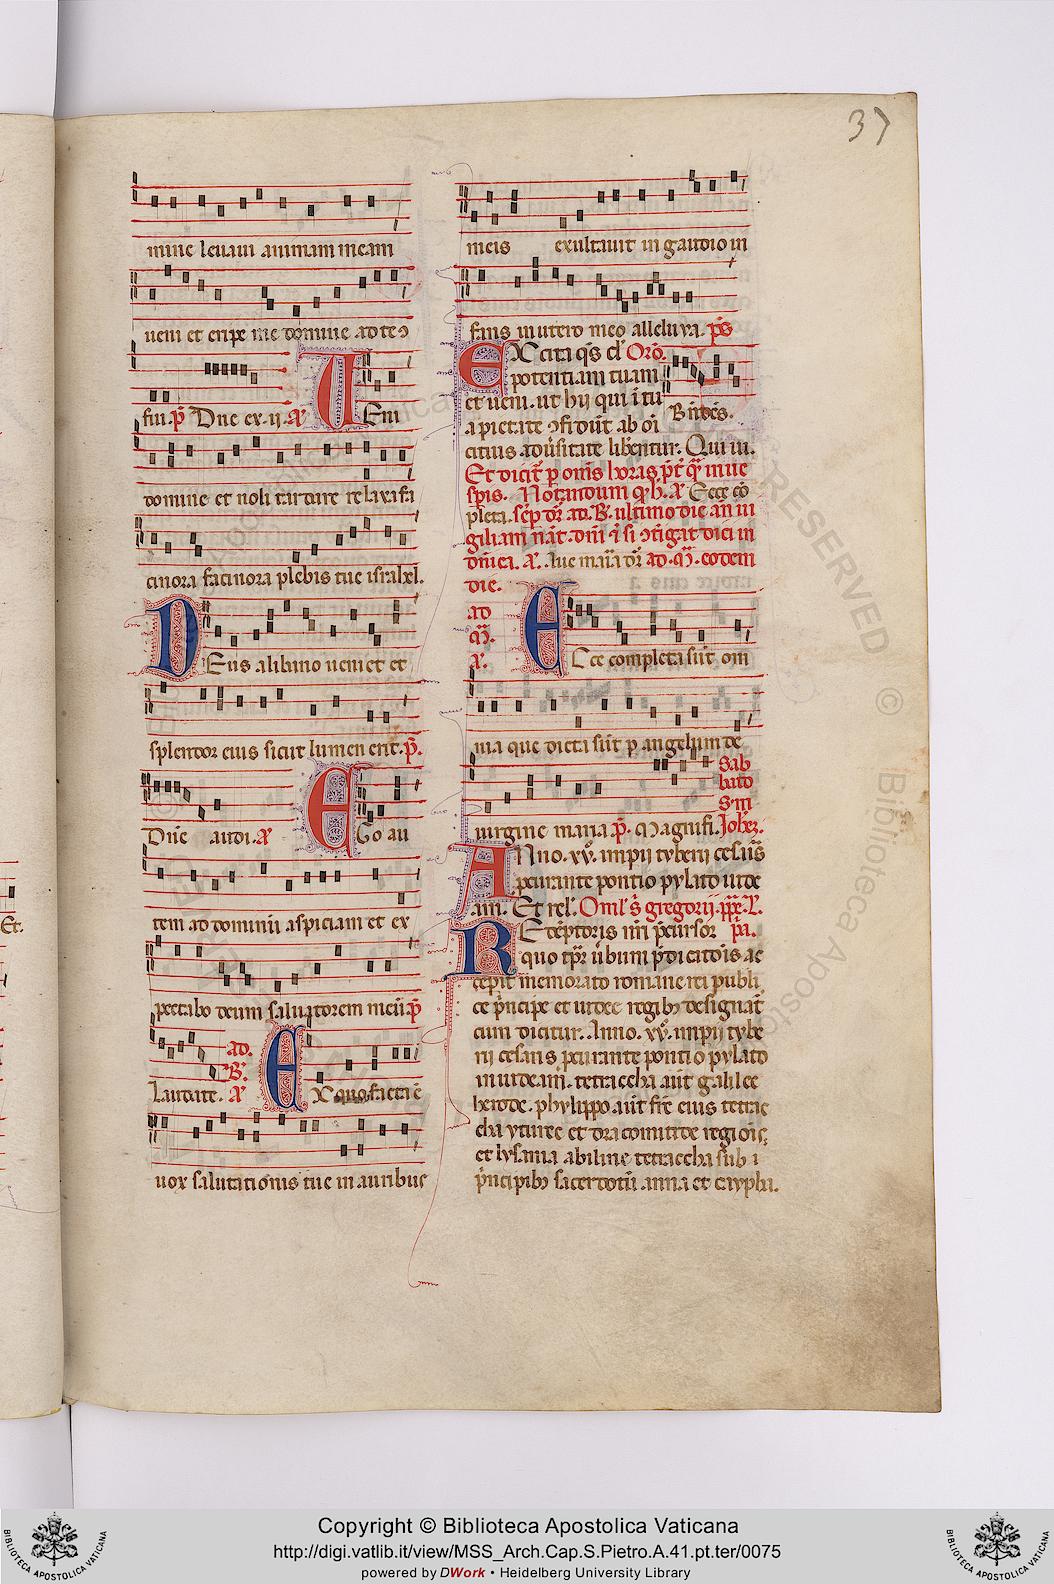 37
mine leuaui animam meam
ueni et eripe me domine ad te ↄ
fui. p̄s Dñe ex. ij. a͞ Ueni
domine et noli tardare relaxa fa
cinora facinora plebis tue israhel.
Deus a libano ueniet et
splendor eius sicut lumen erit. p̄s.
Dñe audi. a͞ Ego au
tem ad dominũ aspiciam et ex
pectabo deum saluatorem meũ p̄s
ad.
B̃.
Laudate. a͞ Ex quo facta ē
uox salutationis tue in auribus
meis exultauit in gaudio in
fans in utero meo alleluya. p̄s
Excita q̄s dñe Orõ.
potentiam tuam
et ueni. ut hij qui ĩ tu Bñdcs̃.
a pietate ↄfidũt ab oĩ
citius aduersitate liberentur. Qui ui.
Et dicit̃ p oms̃ horas
spĩs. Notandum Ecce cõ
pleta.
giliam nat̃. dñi ĩ si ↄtigat dici in
eodem
die.
ad
a͞.
Ecce completa sũt om
nia que dicta sũt p angelum de
Sab
bato
S̃m
uirgine maria p̄s. Magnifi. Johez̃.
Anno. xv̊. impij tyberij cesaris
pcurante pontio pylato iude
am. Et rel̃. Oml̃ s̃ gregorij. pp̃e. L̃.
Redẽptoris nr̃i p̃cursor p̃a.
quo tp̃r uerbum p̃dicatiõis ac
cepit memorato romane rei publi
ce p̃ncipe et iudee regibꝫ designat̃
cum dicitur. Anno. xv̊. impij tybe
rij cesaris pcurante pontio pylato
iudeam. tetrarcha aut̃ galilee
herode. phylippo aut̃ fr̃e eius tetrar
cha yturee et
et lysania abiline tetrarcha sub
p̃ncipibꝫ sacerdotũ anna et caypha.
Et.
Copyright © Biblioteca Apostolica Vaticana
http://digi.vatlib.it/view/MSS_Arch.Cap.S.Pietro.A.41.pt.ter/0075
powered by DWork • Heidelberg University Library
BIBLIOTECA APOSTOLICA VATICANA
BIBLIOTECA APOSTOLICA VATICANA